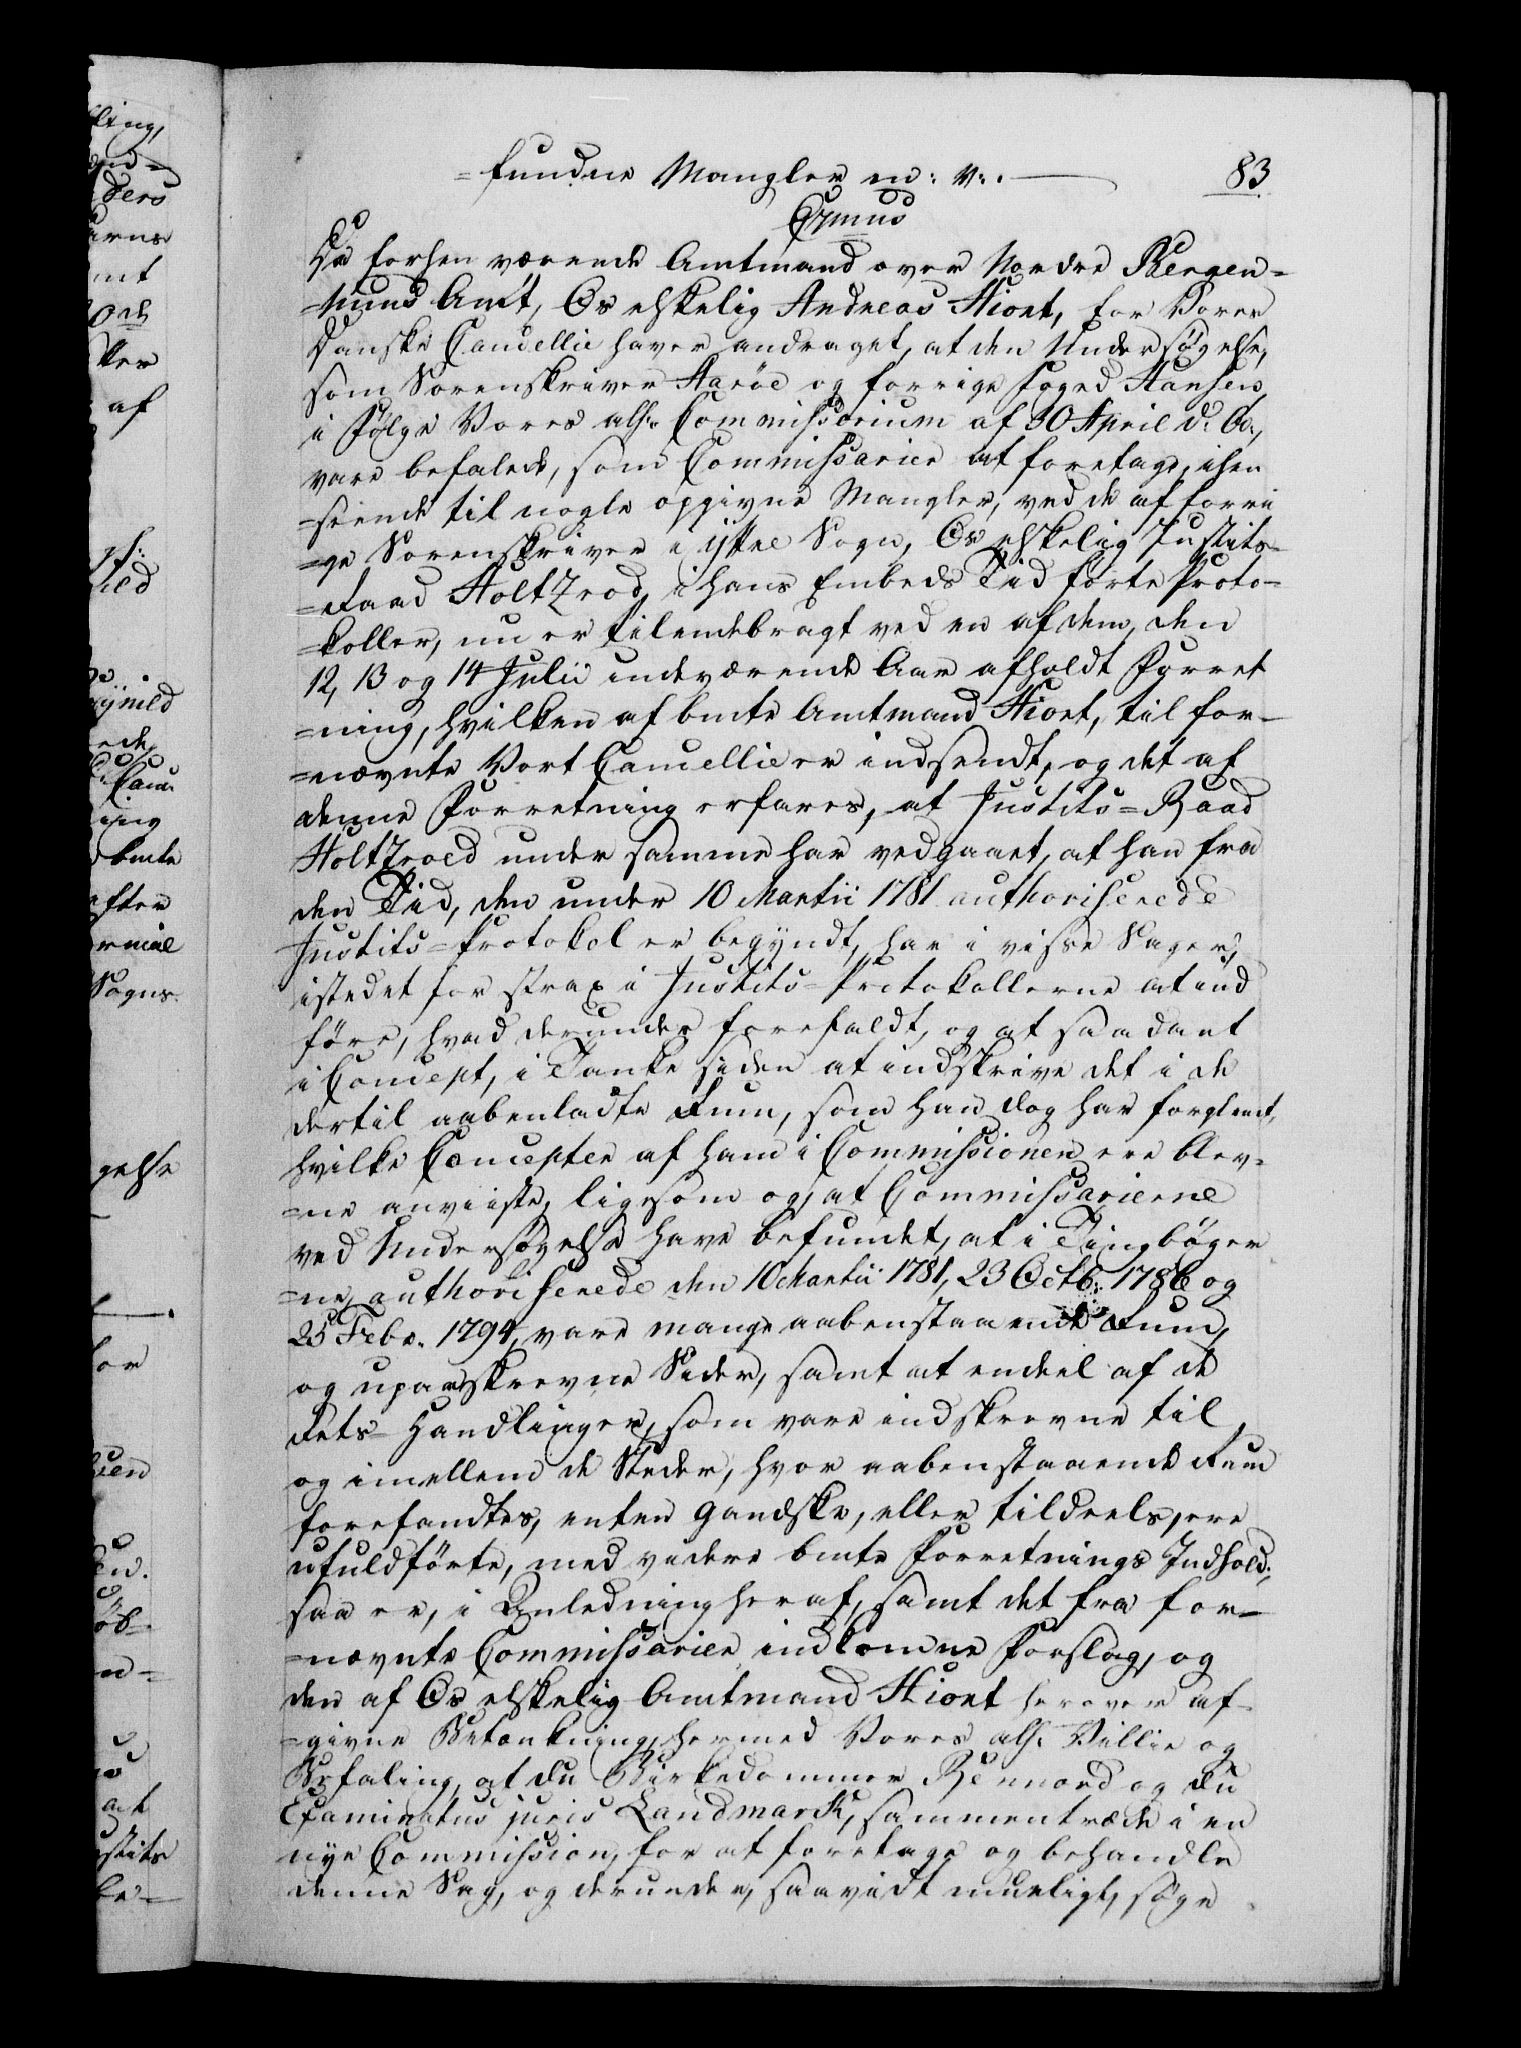 =fundne Mangler m: v:.
83
Grmus
Da forhen værende Amtmand over Nordre Bergen=
=huus Amt, Os elskelig Andreas Hiort, for Vores
Danske Cancellie haver andraget, at den Undersøgelse,
som Sorenskriver Aarøe og forrige Foged Hansen,
i Følge Vores allr: Commissorium af 30 April d: A:,
vare befalede, som Commissarier at foretage, ihen
=seende til nogle opgivne Mangler, ved de af forri
=ge Sorenskriver i yttre Sogn, Os elskelig Justits=
=raad Holtzrod, i hans Embeds Tid førte Proto=
=koller, nu er tilendebragt ved en af dem, den
12, 13 og 14 Julii indeværende Aar afholdt Forret
=ning, hvilken af bmte Amtmand Hiort, til for=
=nævnte Vort Cancellie er indsendt, og det af
denne Forretning erfares, at Justits=Raad
Holtzroed under samme har vedgaaet, at han fra
den Tid, den under 10 Martii 1781 authoriserede
Justits=Protokol er begyndt, har i visse Sager,
istedet for strax i Justits=Protokollerne at ind
føre, hvad derunder forefaldt, og at saadant
i Concept, i Tanke siden at indskrive det i de
dertil aabenladte Rum, som han dog har forglemt,
hvilke Concepter af ham i Commissionen ere blev=
=ne anviiste, ligesom og, at Commissarierne
ved Undersøgelse have befundet, at i Tingbøger
=ne, authoriserede den 10 Martii 1781, 23 Octb: 1786 og
25 Febr. 1794, vare mange aabenstaaende Rum,
og upaaskrevne Sider, samt at endeel af de
Rets=Handlinger, som vare indskrevne til
og imellem de Steder, hvor aabenstaaende Rum
forefandtes, enten gandske, eller tildeels, ere
ufuldførte, med videre bmte Forretnings Indhold;
saa er, i Anledning heraf, samt det fra for=
=nævnte Commissarier indkomne Forslag, og
den af Os elskelig Amtmand Hiort herover af=
=givne Betænkning, hermed Vores allr: Villie og
Befaling, at du Birkedommer Rennord og du
Examinatus juris Landmark, sammentræde i en
nye Commission, for at foretage og behandle
denne Sag, og derunder, saavidt mueligt, søge